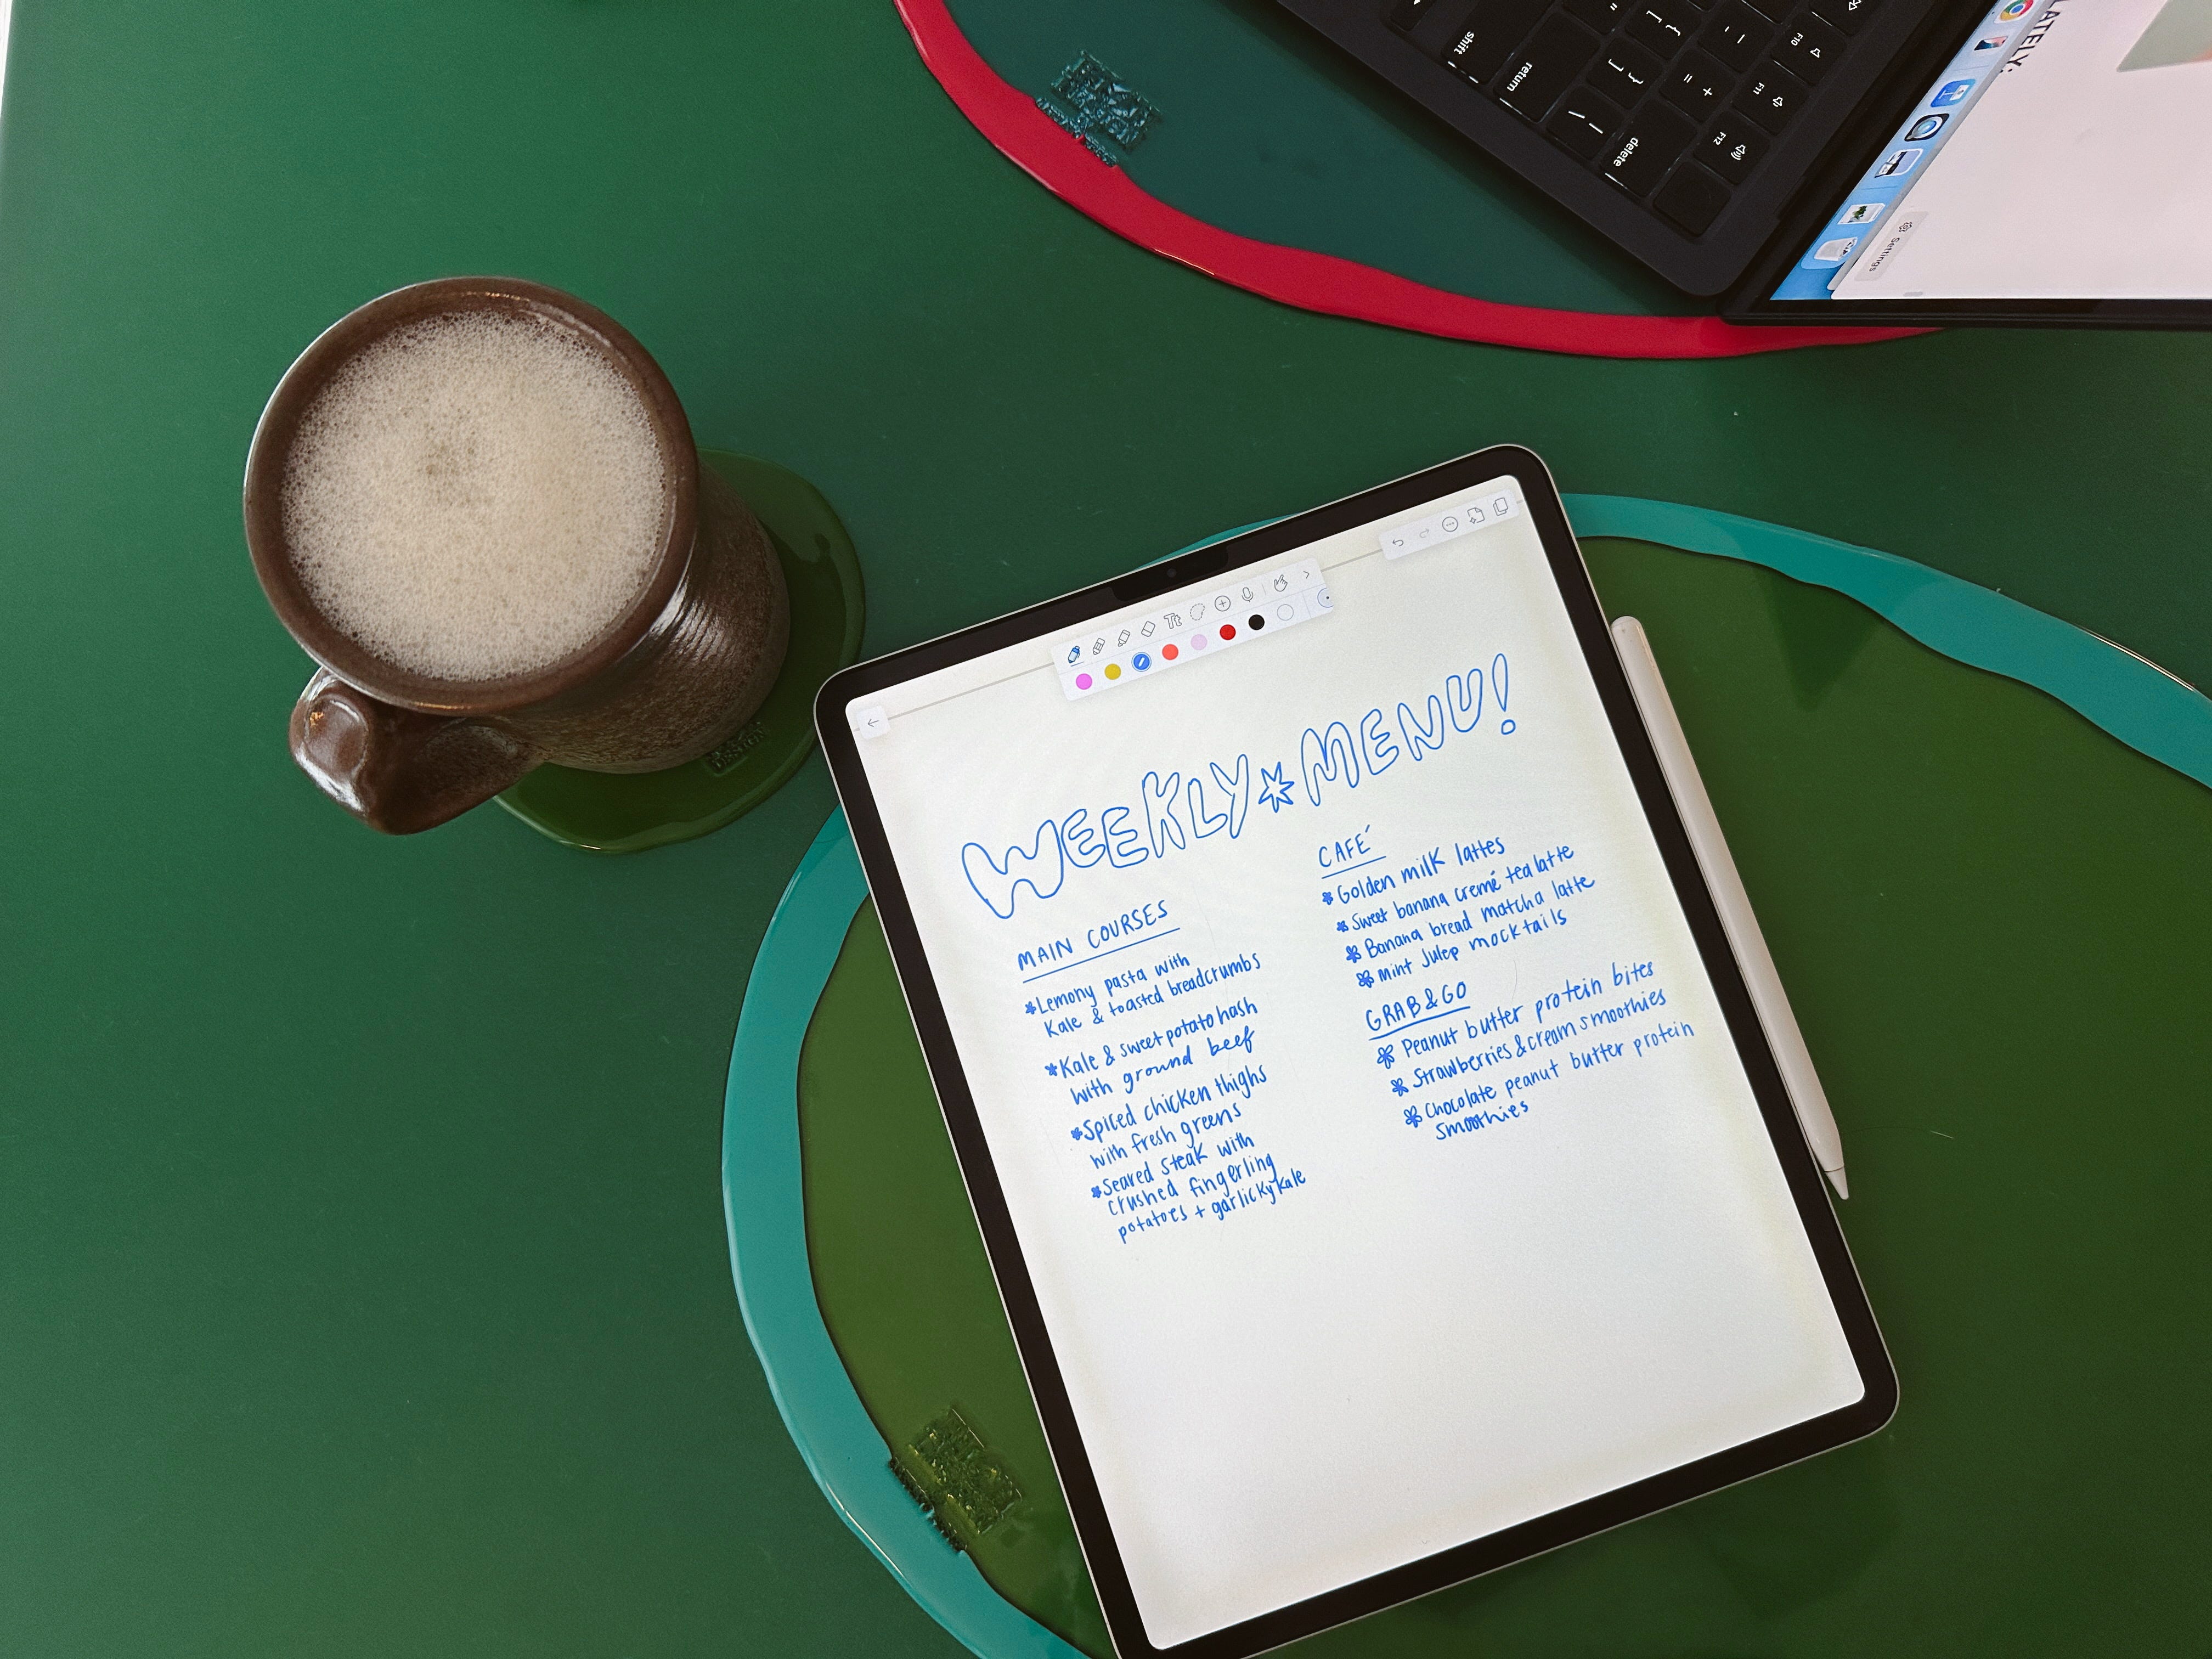 WEEKLY MENU!
MAIN COURSES
Lemony pasta with
Kale & toasted breadcrumbs
Kale & sweet potato hash
with ground beef
Spiced chicken thighs
with fresh greens
Seared steak with
crushed fingerling
potatoes + garlicky kale
CAFÉ
Golden milk lattes
Sweet banana cremé tea latte
Banana bread matcha latte
mint julep mocktails
GRAB & GO
Peanut butter protein bites
Strawberries & cream smoothies
Chocolate peanut butter protein
smoothies
Tt
shift
return
delete
F10
F11
F12
LATELY:
Settings
DESIGN